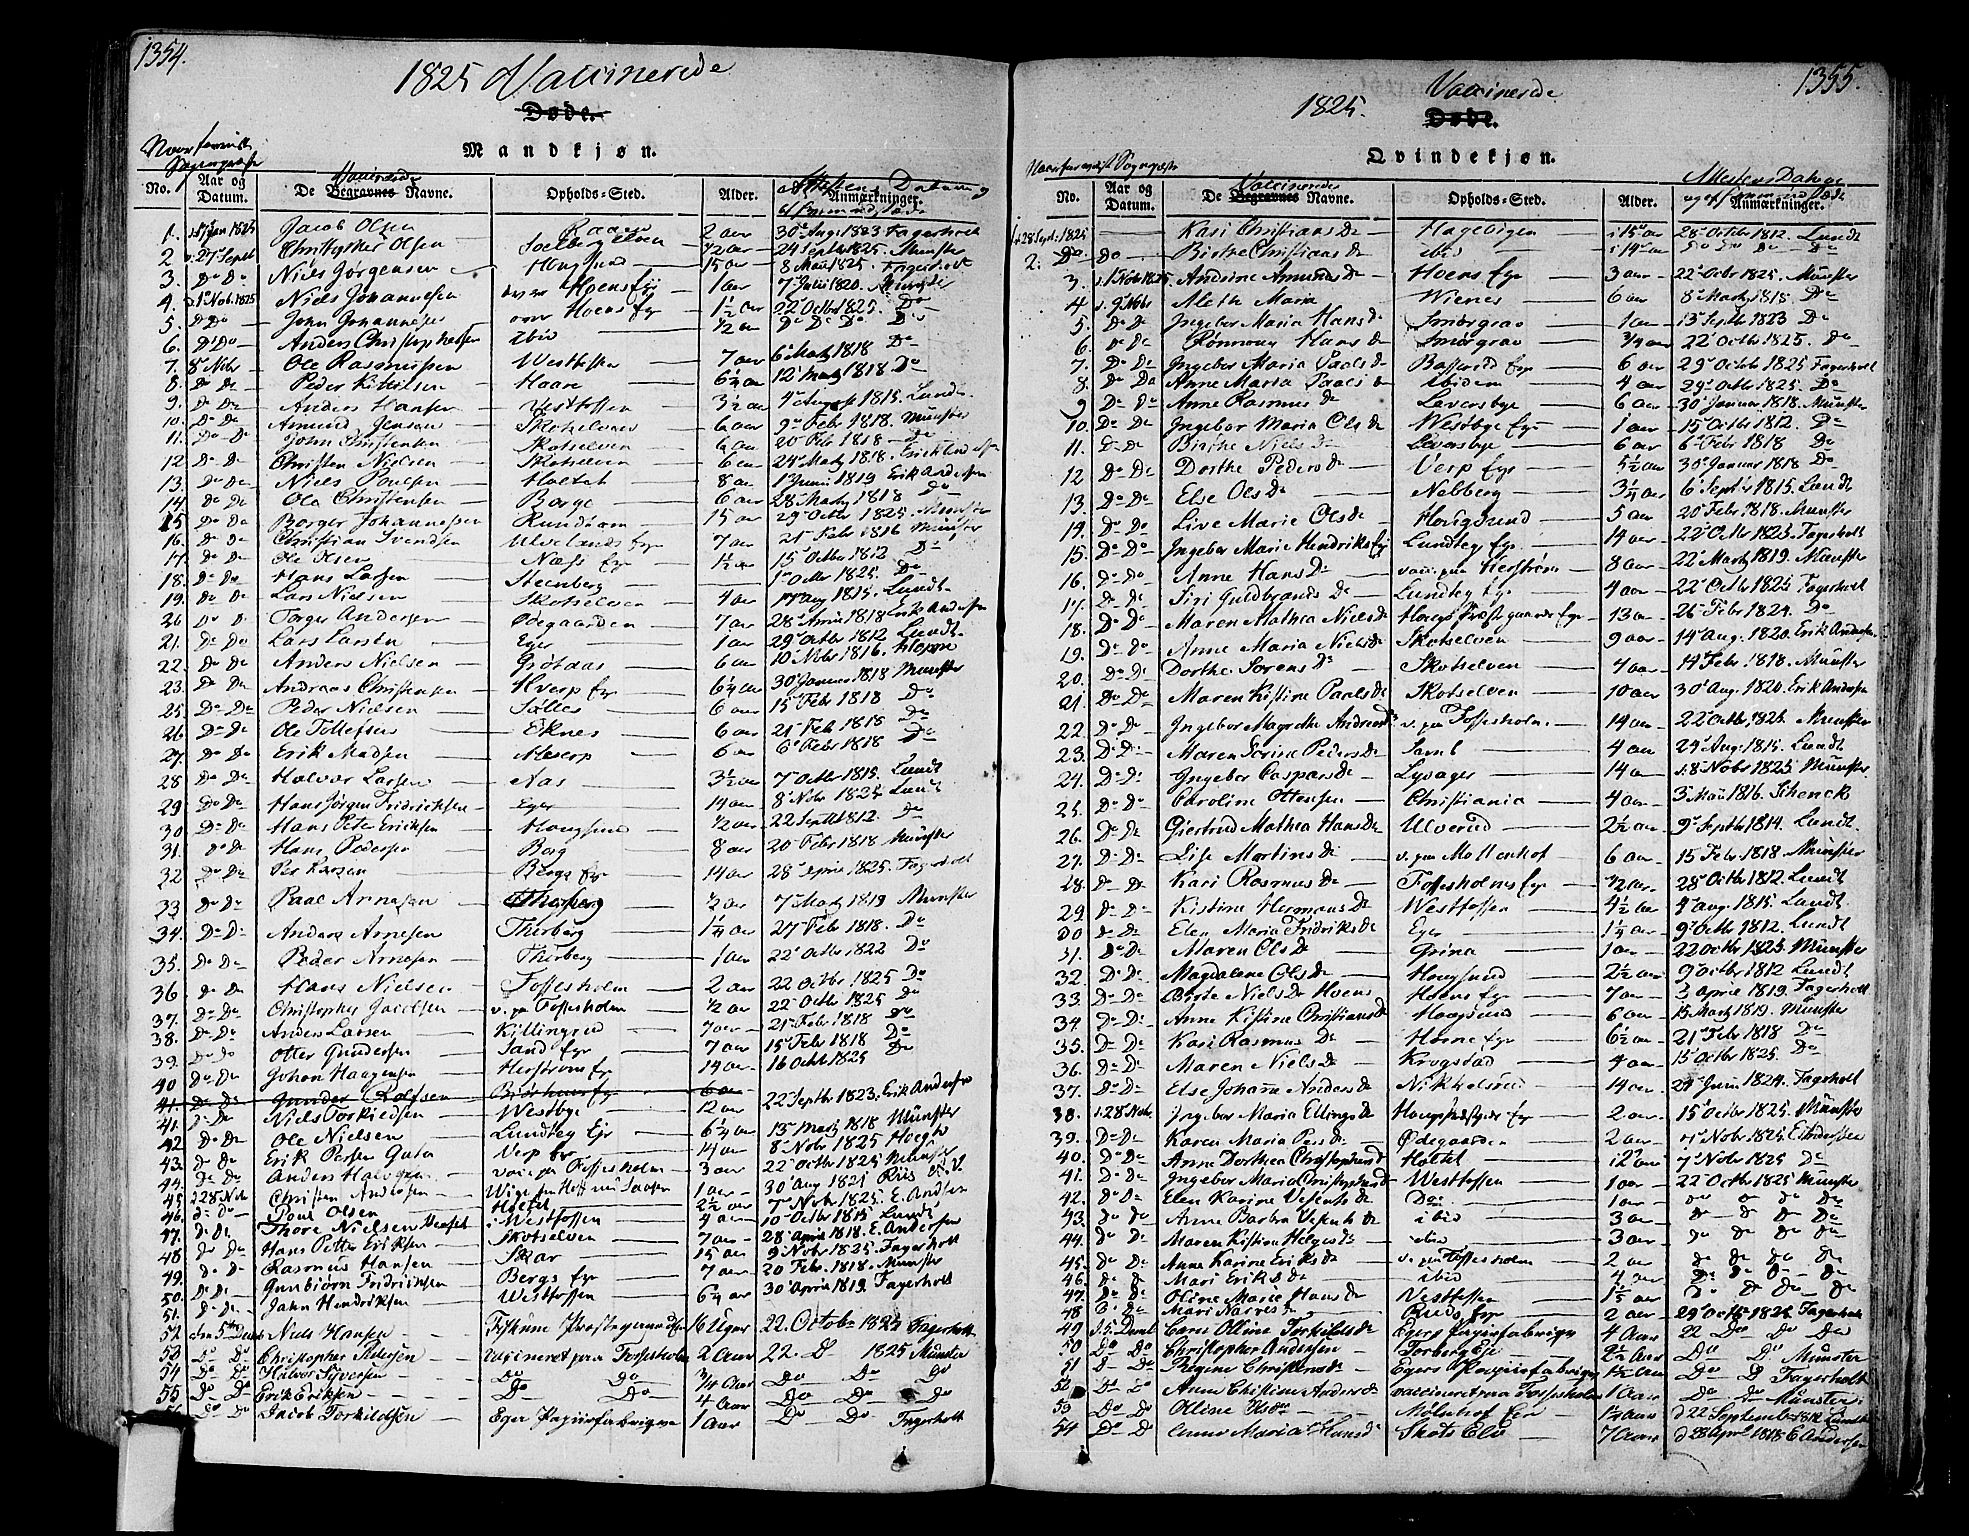 1354.
1825 Vaccinerede
Døde.
Mandkjøn.
No. Aar og Datum. De Vaccinerede Begravnes Navne. Opholds-Sted. Alder. Anmærkninger.
1. Jacob Olsen 2 aar 30 Aug. 1823 Fagerholt
2 27 Septbr Christopher Olsen 1/2 aar 24 Septbr 1825. Münster
3. Do Do Niels Jørgensen 15 aar 8 Mai 1825. Fagerholt
4. 1 Novb. 1825 Niels Johannesen over Hoens Eje 1 aar 7 Julii 1820. Münster
5. Do Do John Johannesen over Hoens Eje 1 1/2 aar 22 Octbr 1825. Do
6. Do Do Anders Christophersen ibid 1/2 aar Do Do Do Do
7. 8 Nobr Ole Rasmussen Westfossen 7 aar 6 Martz 1818 Do
8. Do Do Peder Haare 6 1/4 aar 12 Martz 1818 Do
9. Do Do Anders Hansen Vestfossen 3 1/2 aar 4 August 1815. Lundt
10. Do Do Amund Jensen Skotselven 6 aar 9 Febr 1818. Münster
11. Do Do John Christensen Skotselven 6 aar 20 Feb 1818 Do
12 Do Do Christen Nielsen Skotselven 6 aar 24 Martz 1818. Erick Andersen
13. Do Do Niels Poulsen Holtet 8 aar 1 Junii 1819 Erik Andersen
14. Do Do Ole Christensen Borge 6 aar 28 Martz 1818 Do
15 Do Do Borger Johannesen 15 aar 29 Octbr 1825. Münster
16. Do Do Christian Svendsen Ulvelands Eje 7 aar 21 Febr 1816 Münster
17. Do Do Ole Næss Eje 1 1/2 aar 15 Octbr 1812 Do
18. Do Do Hans Larsen Steenberg 1 Octbr 1825. Do
19. Do Do Lars Nielsen Skotselven 4 aar Aug 1815. Lundt
20 Do Do Torger Andersen Ødegaarden 7 aar 28 April 1818 Erik Andersen
21. Do Do Lars Larsen Eger 1 aar 29 Octbr 1812 Lundt.
22. Do Do Anders Nielsen 6 aar 10 Nobr 1816.
23. Do Do Andreas Christensen Hverp Eje 6 1/4 aar 30 Januar 1818 Münster
25. Do Do Peder Nielsen 6 aar 15 Febr 1818 Do
26 Do Do Ole Tollefsen Eknes 6 aar 21 Feb 1818 Do
27. Do Do Erik Madsen 6 aar 6 Febr 1818 Do
28 Do Do Halvor Larsen Aas 3 1/2 aar 7 Octbr 1815. Lundt
29 Do Do Hans Jørgen Fridricksen Eger 14 aar 8 Nobr 1825 Lundt
30 Do Do Hans Peter Ericksen Hougsund 1/2 aar 22 Septb 1812 Do
31. Do Do Hans Pedersen Borg 8 aar 20 Febr 1818 Münster
32 Do Do Per Larsen Bergs Eje 14 aar 28 April 1825. Fagerholt
33 Do Do Paal Arnesen Thorberg 1/2 aar 7 Martz 1819 Münster
34. Do Do Anders Arnesen Thorberg 1 1/4 aar 27 Febr 1818. Do
35. Do Do Peder Arnesen Thorberg 1 aar 22 Octbr 1822 Do
36 Do Do Hans Nielsen Fossesholm 2 aar 22 Octbr 1825 Do
37. Do Do Christopher Jacobsen v. paa Fossesholm 1/2 aar 22 Octbr 1825 Do
38. Do Do Anders Larsen Killingrud 7 aar 21 Febr 1818 Do
39. Do Do Otter Gundersen Sand Eje 7 aar 15 Febr 1818 Do
40 Do Do Johan Haagensen Herstrøm Eje 14 aar 16 Octbr 1825 Do
41. Do Do Gunder Rolfsen 6 aar
41. Do Do Niels Torkildsen Westbye 12 aar 22 Septbr 1823. Erik Andersen
42 Do Do Ole Nielsen Lundteg Eje 6 1/4 aar 13 Martz 1818 Münster
43. Do Do Erik Persen Verp Eje 14 aar 8 Nobr 1825
44. Do Do Anders Halvorsen vacc. paa Fossesholm 3 aar 22 Octbr 1825 Münster
45 28 Nob. Christen Andersen 1 aar 30 Aug 1821 Riis
46. Do Do Poul Olsen Holtet 2 1/2 aar 7 Nobr. 1825. E. Andersen
47. Do Do Thore Nielsen i Westfossen 4 aar 10 Octbr 1815 Lundt
48 Do Do Hans Petter Eriksen Skotselven 7 aar 28 April 1818. E. Andersen
49. Do Do Rasmus Hansen Skar 15 aar 9 Nobr 1825. Fagerholt
50. Do Do Gunbiørn Fridrichsen Bergs Eje 7 aar 20 Febr. 1818. Münster
51. Do Do John Hendriksen Westfossen 6 1/4 aar 30 April 1819. Fagerholt
52 den 5te Decemb Niels Hansen Fiskum 16 Uger 22. Octobr 1825 Fagerholt
53 Do Do Christopher Pedersen vaccineret paa Fossesholm 2 Aar 22. D 1825 Münster
54 Do Do Halvor Syversen Do Do 3/4 Aar Do Do Do
55 Do Do Erik Eriksen Do Do 4 Aar Do Do Do
56 Do Do Jacob Torkildsen Eger Papiirfabrique 1 Aar Do Do Fagerholt
1355.
1825. Vaccinerede
Døde.
Qvindekjøn.
No. Aar og Datum. De Vaccinerede Begravnes Navne. Opholds-Sted. Alder. Anmærkninger.
1 28 Sept. 1825 Kari Christians D Hagebigen 15 aar 28 Octobr 1812. Lundt
2. Do Do Birthe Christians D ibid 14 aar Do Do Do Do
3. 1 Nobr 1825 Andrine Amunds D Hoens Eje 3 aar 22 Octbr 1825. Münster
4 9 Nobr Aleth Maria Wienes 6 aar 8 Martz 1818. Do
5. Do Do Ingebor Maria Hans D Smørgrav 1 aar 13 Septbr 1823 Do
6. Do Do Rønnoug Hans D Smørgrav 3/4 aar 22 Octbr 1825. Do
7. Do Do Ingebor Maria Paals D Eje 6 aar 29 Octbr 1825 Fagerholt
8. Do Do Anne Maria Paals D ibidem 4 aar 29 Octbr 1825. Do
9 Do Do Anne Rasmus D Leversbye 6 aar 30 Januar 1818. Münster
10. Do Do Ingebor Maria Ols D Westbye Eje 1 aar 15 Octbr 1812. Do
11. Do Do Birthe Niels D Leversbye 6 aar 6 Febr 1818 Do
12 Do Do Dorthe Peders D Verp Eje 5 1/2 aar 30 Januar 1818 Do
13. Do Do Else Ols D Nebberg 3 1/4 aar 6 Septbr 1815. Lundt
14. Do Do Live Marie Ols D Hougsund 5 aar 20 Febr 1818. Münster
15. Do Do Ingebor Marie Hendriks Lundteg Eje 14 aar 22 Octbr 1825. Fagerholt
16. Do Do Anne Hans D vacc. paa Herstrøm 8 aar 22 Martz 1819. Münster
17. Do Do Siri Guldbrands D Lundteg Eje 4 aar 22 Octbr 1825 Fagerholt
18. Do Do Maren Mathea Niels D Hougs Præstegaards Eje 13 aar 26 Febr 1824. Do
19. Do Do Anne Maria Niels D Skotselven 9 aar 14 Aug. 1820. Erik Andersen
20. Do Do Dorthe Sørens D Skotselven 4 aar 14 Febr 1818. Münster
21. Do Do Maren Kistine Paals D Skotselven 10 aar 30 Aug 1820. Erik Andersen
22. Do Do Ingebor Magrethe Andreas D v. paa Fossesholm. 14 aar 22 Octbr 1825. Münster
23. Do Do Maren Sørine Peders D 4 aar 24 Aug. 1815. Lundt
24. Do Do Ingebor Caspars D Lyvager 14 aar 18 Nobr 1825 Münster
25. Do Do Caroline Ottersen Christiania 4 aar 3 Mai 1816. Schenck
26. Do Do Giertrud Mathea Hans D Ulverud 2 1/2 aar 9 Septbr 1814. Lundt.
27. Do Do Lise Martins D v. paa Møllenhof 6 aar 15 Febr 1818. Münster
28. Do Do Kari Rasmus D Fossesholms Eje 1/2 aar 28 Octbr 1812. Lundt
29 Do Do Kistine Hermans D Westfossen 4 1/2 aar 4 Aug 1815. Lundt.
30 Do Do Elen Maria Fridriks D Eger 1 1/4 aar 9 Octbr 1812. Lundt
31. Do Do Maren Ols D Grina 1 aar 22 Octbr 1825. Münster
32 Do Do Magdalene Ols D Hougsund 2 1/2 aar 9 Octbr 1812 Lundt
33 Do Do Birte Niels D Hoens Hoens Eje 7 aar 3 April 1819. Fagerholt
34 Do Do Anne Kistine Christians D Hougsund 6 aar 15 Martz 1819. Münster
35. Do Do Kari Rasmus D Horne Eje 6 1/2 aar 21 Febr 1818 Do
36. Do Do Maren Niels D Krogstad 4 aar 15 Octbr 1825. Do
37. Do Do Else Johanne Anders D 14 aar 24 Junii 1824. Fagerholt
38. 28 Nobr. Ingebor Maria Ellings D Eje 2 aar 15 Octbr 1825. Münster
39. Do Do Karen Maria Pers D Ødegaarden 2 aar 4 Nobr 1825. E Andersen
40. Do Do Anne Dorthea Christophers D Holtet 12 aar 7 Nobr 1825 Do
41. Do Do Ingebor Maria Christophers D Westfossen 1 aar 22 Octbr 1825 Münster
42. Do Do Elen Karine Do 1 aar Do Do Do Do
43. Do Do Anne Barbra ibid 3 aar Do Do Do Do
44. Do Do Maren Kistina Helges D ibid 3 aar Do Do Do Do
45. Do Do Anne Karine Eriks D v. paa Fossesholm 2 aar Do Do Do Do
46 Do Do Mari Eriks D ibid 4 aar Do Do Do Do
47. Do Do Oline Marie Hans D Vestfossen Do Do Do Do
48 Do Do Mari Ruds Eje 2 aar 29 Octbr 1825 Fagerholt
49 5. Decemb Oline Torkilds D Egers Papirfabrique 4 Aar 22 Do Do Do
50 Do Do Christopher Andersen Torberg Eje 2 1/2 Aar Do D. Münster
51 D Do Regine Christens D Egers Papirfabrique 1 1/2 Aar Do D Fagerholt
52 Do Do Anne Christine Anders D vaccineret paa Fossesholm 1 Aar Do Do Münster
53 Do Do Olline Mølshof Eje 1 1/2 Aar d 22 September 1812 Lundt
54 Do D Anne Maria Hans D Skots Elv 7 Aar d 28 Apr. 1818 E Andersen